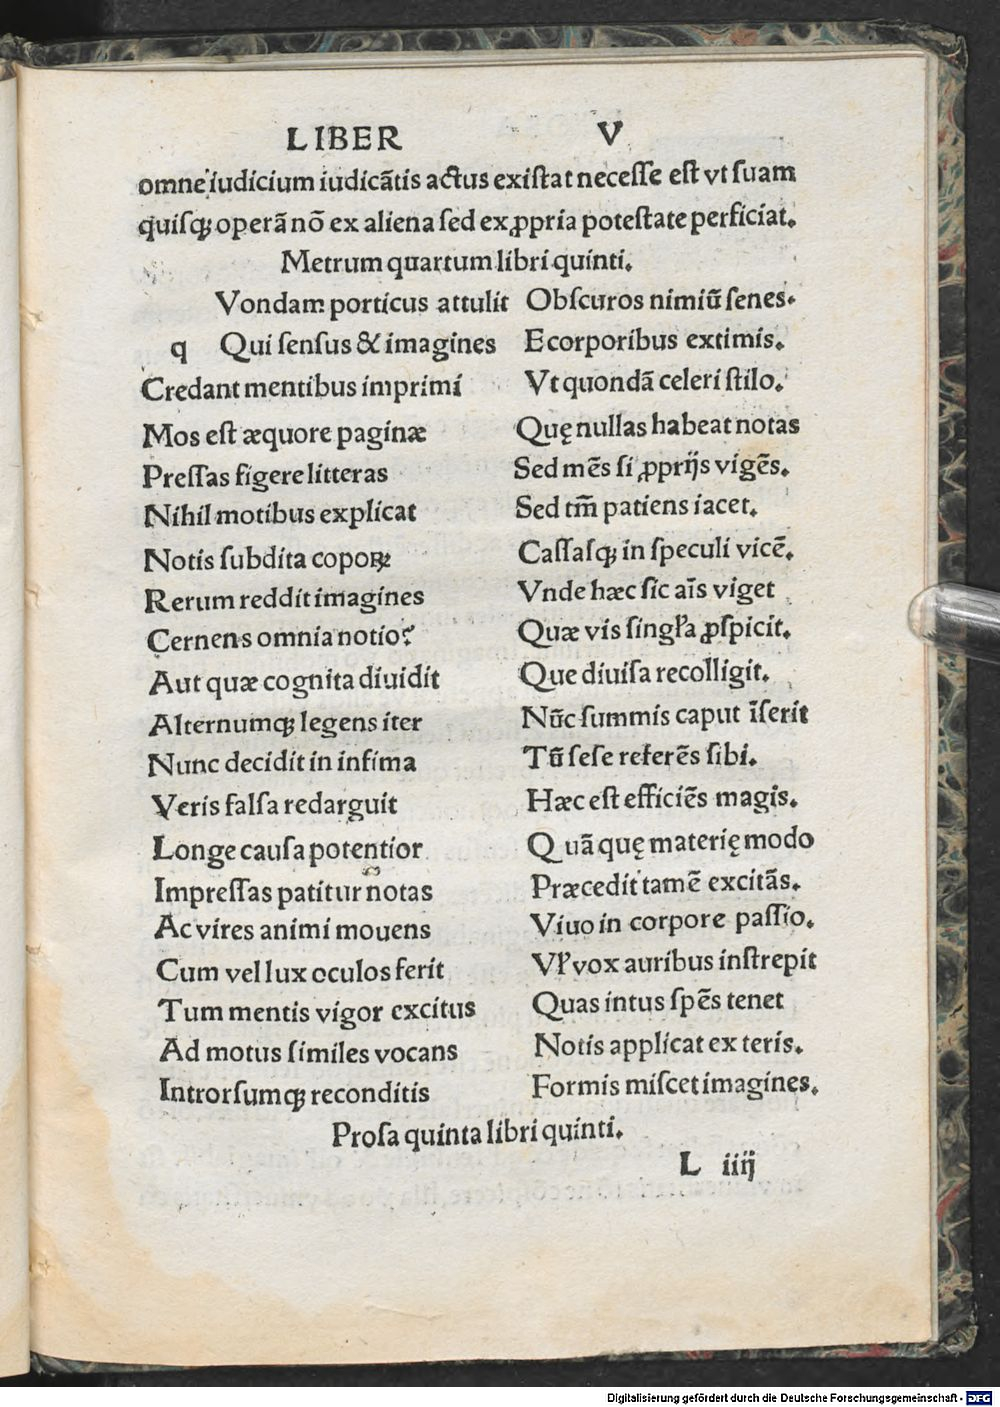 LIBER V
omne iudicium iudicãtis actus existat necesse est vt suam
quisqꝫ operã nõ ex aliena sed ex ꝓpria potestate perficiat.
Metrum quartum libri quinti.
Vondam porticus attulit Obscuros nimiũ senes.
q Qui sensus & imagines E corporibus extimis.
Credant mentibus imprimi Vt quondã celeri stilo.
Mos est æquore paginæ Quę nullas habeat notas
Pressas figere litteras Sed mẽs si ꝓprijs vigẽs.
Nihil motibus explicat Sed tm̃ patiens iacet.
Notis subdita copoꝝ Cassasqꝫ in speculi vicẽ.
Rerum reddit imagines Vnde hæc sic aĩs viget
Cernens omnia notio? Quæ vis singl'a ꝓspicit.
Aut quæ cognita diuidit Que diuisa recolligit.
Alternumqꝫ legens iter Nũc summis caput ĩserit
Nunc decidit in infima Tũ sese referẽs sibi.
Veris falsa redarguit Hæc est efficiẽs magis.
Longe causa potentior Quã quę materię modo
Impressas patitur notas Præcedit tamẽ excitãs.
Ac vires animi mouens Viuo in corpore passio.
Cum vel lux oculos ferit Vl' vox auribus instrepit
Tum mentis vigor excitus Quas intus spẽs tenet
Ad motus similes vocans Notis applicat ex teris.
Introrsumqꝫ reconditis Formis miscet imagines.
Prosa quinta libri quinti.
L iiij
Digitalisierung gefördert durch die Deutsche Forschungsgemeinschaft - DFG